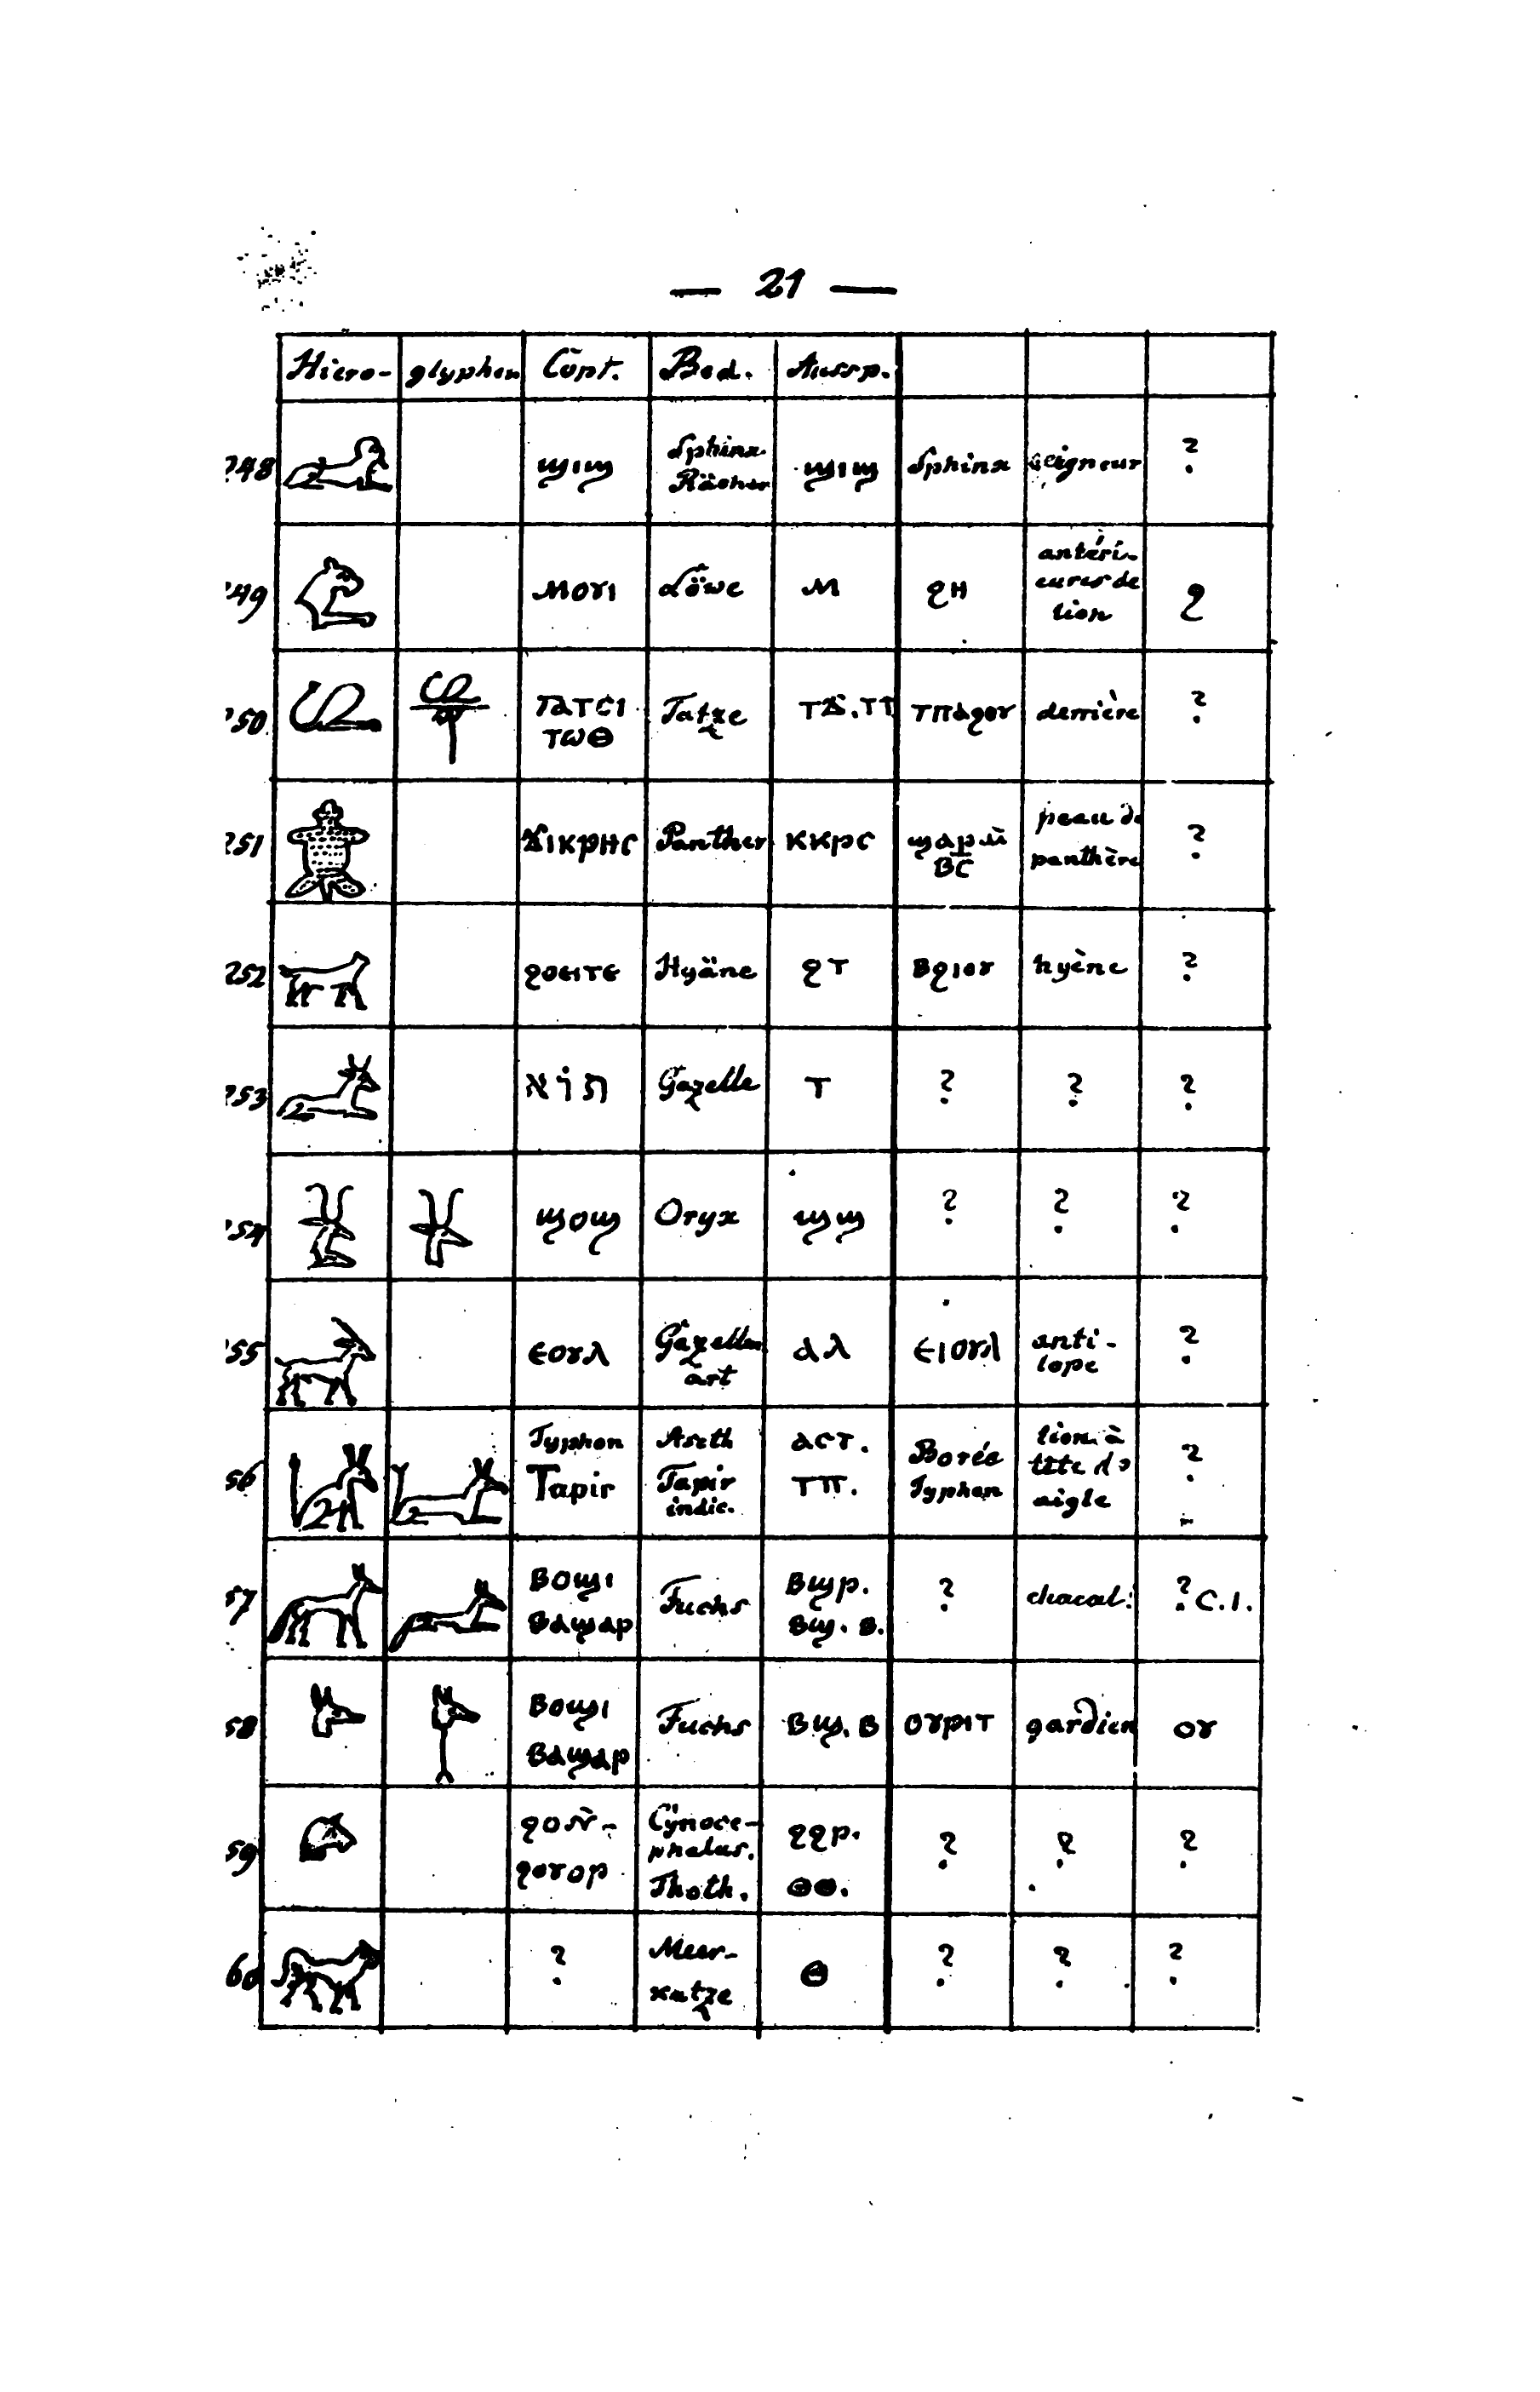 — 21 —
Hiero- glyphen Copt. Bed. Aussp.
248 ϣιϣ Sphinx Rächer ϣιϣ Sphinx seigneur ?
249 ⲙⲟⲩⲓ Löwe ⲙ ϩⲏ antéri- eures de lion ϩ
250 ⲧⲱⲑ Tatze ⲧⲡⲁϩⲟⲩ derrière ?
251 ϫⲓⲕⲣⲏⲥ Panther ⲕⲕⲣⲥ peau de panthère ?
252 ϩⲟⲉⲓⲧⲉ Hyäne ϩⲧ ⲃϩⲓⲟⲩ hyène ?
253 Gazelle ⲧ ? ? ?
254 ϣⲟϣ Oryx ϣϣ ? ? ?
55 ⲉⲟⲩⲗ Gazellen art ⲁⲗ ⲉⲓⲟⲩⲗ anti- lope ?
56 Typhon Tapir Aseth Tapir indic. ⲁⲥⲧ. ⲧⲡ. Borée Typhon lion à tête d' aigle ?
57 ⲃⲟϣⲓ ⲃⲁϣⲁⲣ Fuchs ⲃϣⲣ. ⲃϣ. ⲃ. ? chacal: ? C.I.
58 ⲃⲟϣⲓ ⲃⲁϣⲁⲣ Fuchs ⲃϣ. ⲃ ⲟⲩⲣⲓⲧ gardien ⲟⲩ
59 ϩⲟⲩⲟⲣ Cynoce- phalus. Thoth. ϩϩⲣ. ⲑⲑ. ? ? ?
60 ? Meer- katze ⲑ ? ? ?